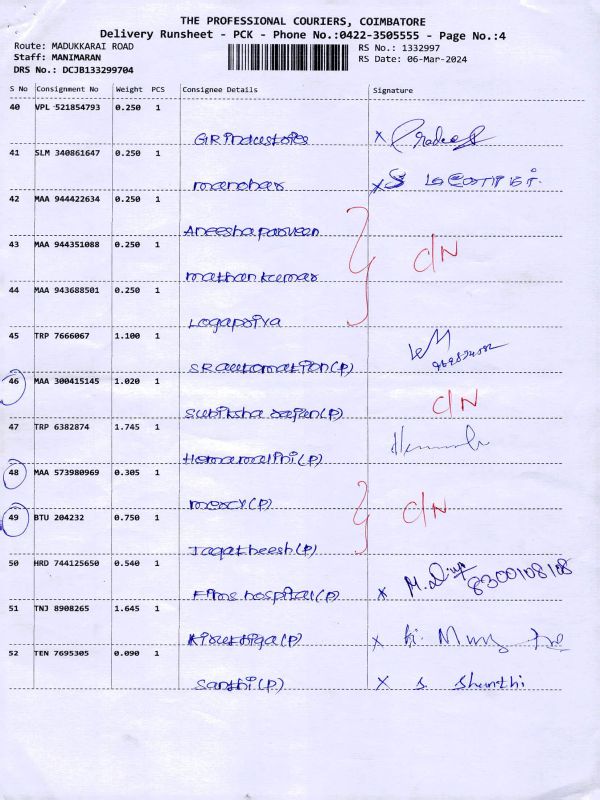 THE PROFESSIONAL COURIERS, COIMBATORE
Delivery Runsheet - PCK - Phone No.:0422-3505555 - Page No.:4
Route: MADUKKARAI ROAD
Staff: MANIMARAN
DRS No.: DCJB133299704
RS No.: 1332997
RS Date: 06-Mar-2024
S No Consignment No Weight PCS Consignee Details Signature
40 VPL 521854793 0.250 1
GR Industries x Pradeep
41 SLM 340861647 0.250 1
manohar x S
42 MAA 944422634 0.250 1
Aneesha parveen
43 MAA 944351088 0.250 1 C/N
mathan kumar
44 MAA 943688501 0.250 1
Logapriya
45 TRP 7666067 1.100 1
SR automation(P)
46 MAA 300415145 1.020 1 C/N
Subiksha rajen(P)
47 TRP 6382874 1.745 1
Hemamalthi(P)
48 MAA 573980969 0.305 1
mercy(P) C/N
49 BTU 204232 0.750 1
Jagatheesh(P)
50 HRD 744125650 0.540 1
Fims hospital(P) x 8300108108
51 TNJ 8908265 1.645 1
Kiruthiga(P) x
52 TEN 7695305 0.090 1
Santhi(P) x S Shanthi